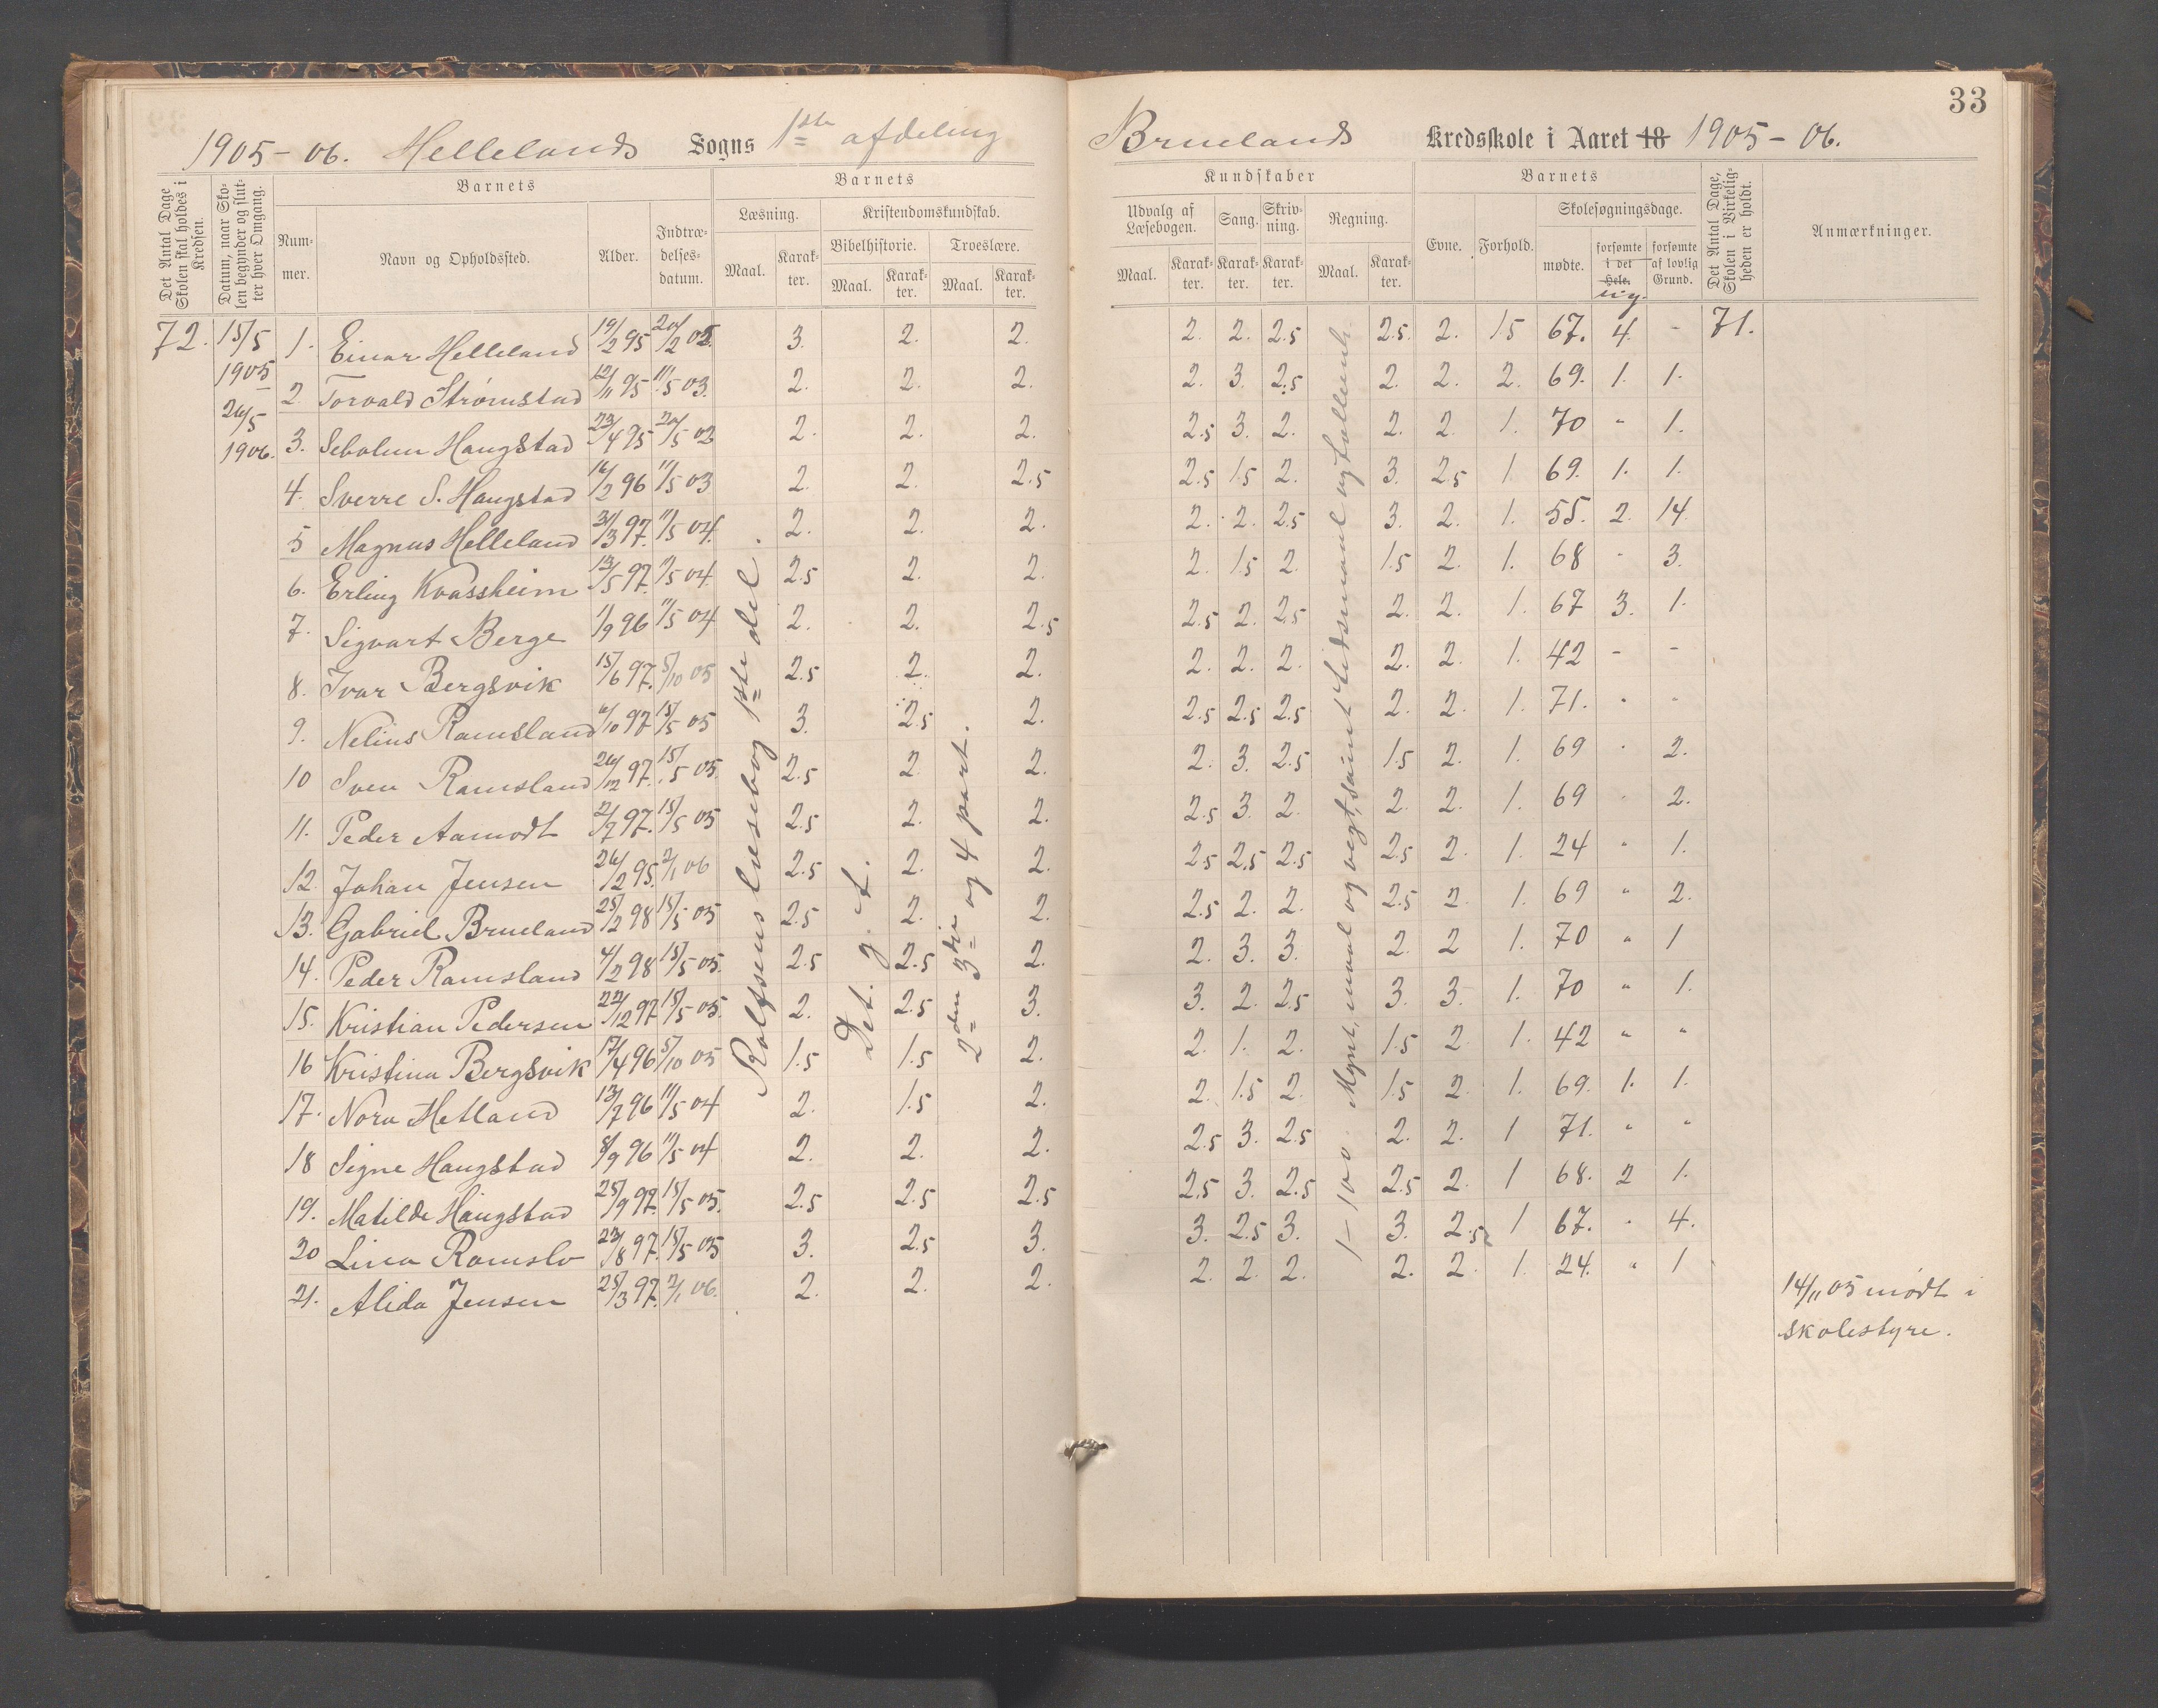 1905 – 06. Hellelands Sogns 1ste afdeling
Bruelands Kredsskole i Aaret 18 1905 – 06.
33
Det Antal Dage Skolen skal holdes i Kredsen.
Datum, naar Skolen begynder og slutter hver Omgang.
Barnets
Nummer.
Navn og Opholdssted.
Alder.
Indtrædelsesdatum.
Barnets
Læsning.
Maal.
Karakter.
Kristendomskundskab.
Bibelhistorie.
Maal.
Karakter.
Troeslære.
Maal.
Karakter.
Kundskaber
Udvalg af Læsebogen.
Maal.
Karakter.
Sang.
Karakter.
Skrivning.
Karakter.
Regning.
Maal.
Karakter.
Barnets
Evne.
Forhold.
Skolesøgningsdage.
mødte.
forsømte i det Hele. ug.
forsømte af lovlig Grund.
Det Antal Dage, Skolen i Virkeligheden er holdt.
Anmærkninger.
72. 15/5 1905 26/5 1906.
1. Einar Helleland 19/2 95 20/2 02. 3. 2. 2. 2. 2. 2.5 2.5. 2. 15 67. 4. - 71.
2 Torvald Strømstad 12/11 95 11/5 03. 2. 2. 2. 2. 3. 2.5 2. 2. 2. 69. 1. 1.
3. Sebolum Haugstad 23/4 95 20/5 02 2. 2. 2. 2.5 3. 2. 2. 2. 1. 70 " 1.
4. Sverre S. Haugstad 16/2 96 11/5 03 2. 2. 2.5 2.5 1.5 2. 3. 2.5 1 69. 1. 1.
5 Magnus Helleland 31/3 97. 11/5 04. 2. 2. 2. 2. 2. 2.5 3. 2. 1. 55. 2. 14.
6. Erling Kvassheim 13/5 97. 11/5 04. 2.5 2. 2. 2. 1.5 2. 1.5 2. 1. 68 - 3.
7. Sigvart Berge 1/9 96 11/5 04 2. 2. 2.5 2.5 2. 2.5 2. 2. 1. 67 3. 1.
8. Ivar Bergsvik 15/6 97. 5/10 05 2.5 2. 2. 2. 2. 2. 2. 2. 1. 42 - -
9. Nelius Ramsland 6/10 97 15/5 05 3. 2.5 2. 2.5 2.5 2.5 2. 2. 1. 71. " "
10 Sven Ramsland 26/12 97. 15/5 05. 2.5 2 2. 2. 3. 2.5 1.5 2. 1. 69 " 2.
11. Peder Aamodt 2/7 97. 15/5 05 2.5 2. 2. 2.5 3. 2. 2. 2. 1. 69 " 2.
12. Johan Jensen 26/2 95. 2/1 06 2.5 2. 2. 2.5 2.5 2.5 2.5 2. 1. 24 " 1.
13. Gabriel Brueland 25/2 98 15/5 05 2.5 2. 2. 2.5 2. 2. 2.5 2. 1. 69 " 2.
14. Peder Ramsland 4/2 98 15/5 05. 2.5 2.5 2. 2. 3. 3. 2. 2 1. 70 " 1
15. Kristian Pedersen 22/12 97 15/5 05. 2. 2.5 3. 3. 2. 2.5 3. 3. 1. 70 " 1.
16 Kristina Bergsvik 17/4 96 5/10 05 1.5 1.5 2. 2. 1. 2. 1.5 2 1. 42 " "
17. Nora Hetland 13/7 96 11/5 04 2. 1.5 2. 2. 1.5 2. 1.5 2. 1. 69. 1. 1.
18 Signe Haugstad 8/9 96 11/5 04 2. 2. 2. 2.5 3. 2.5 2. 2. 1 71. " "
19. Matilde Haugstad 25/9 97. 15/5 05. 2.5 2.5 2.5 2.5 3. 2.5 2.5 2. 1 68. 2 1.
20 Lina Ramslo 23/8 97. 15/5 05 3. 2.5 3. 3. 2.5 3. 3. 2.5 1 67. " 4.
21. Alida Jensen 25/3 97. 2/1 06. 2. 2. 2. 2. 2. 2. 2. 2. 1. 24. " 1
Rolfsens læsebog 1ste del.
Det. g. t.
2den 3die og 4 part.
1 – 100. Mynt, maal og vegt, samt tidsmaal og tallenh.
14/11 05 mødt i
skolestyre.